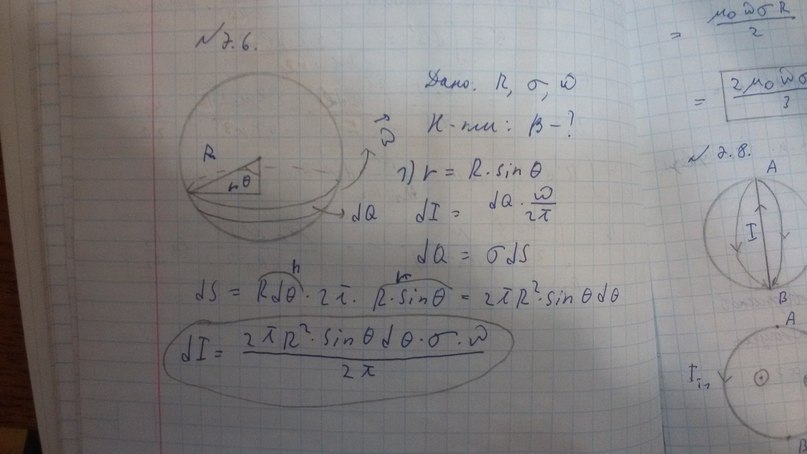 №7.6.
Дано: R, σ, ω
Н-ти: B-?
R
r θ
ω
dQ
1) r = R·sinθ
dI = dQ·ω/2π
dQ = σdS
h r
dS = Rdθ·2π·R·sinθ = 2πR²·sinθdθ
dI = 2πR²·sinθdθ·σ·ω/2π
= μ₀ωσR/2
= 2μ₀ωσ/3
№7.8.
A
I
B
A
I
B